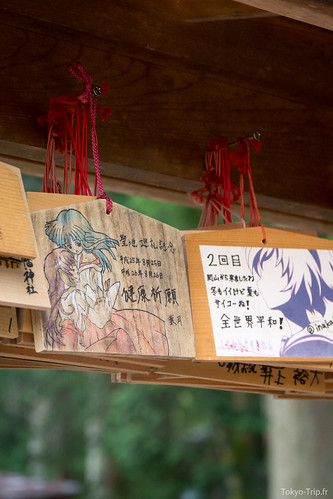 聖地巡礼記念
平成25年8月25日
平成26年8月26日
健康祈願
葉月
2回目
岡山から来ました!
冬もイイけど夏も
サイコーだ!
全世界平和!
@inaka
神社
井上裕
Tokyo-Trip.fr